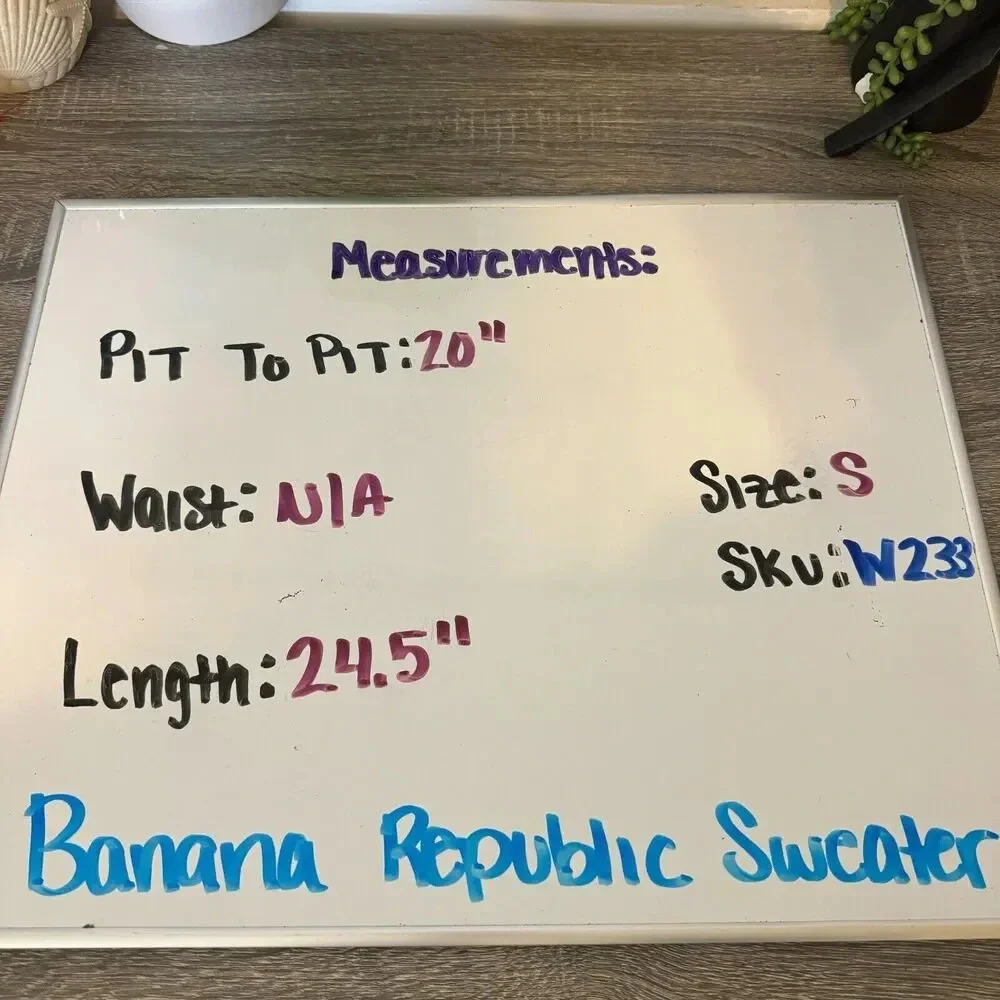 Measurements:
PIT TO PIT: 20"
Waist: N/A
Size: S
SKU: W233
Length: 24.5"
Banana Republic Sweater